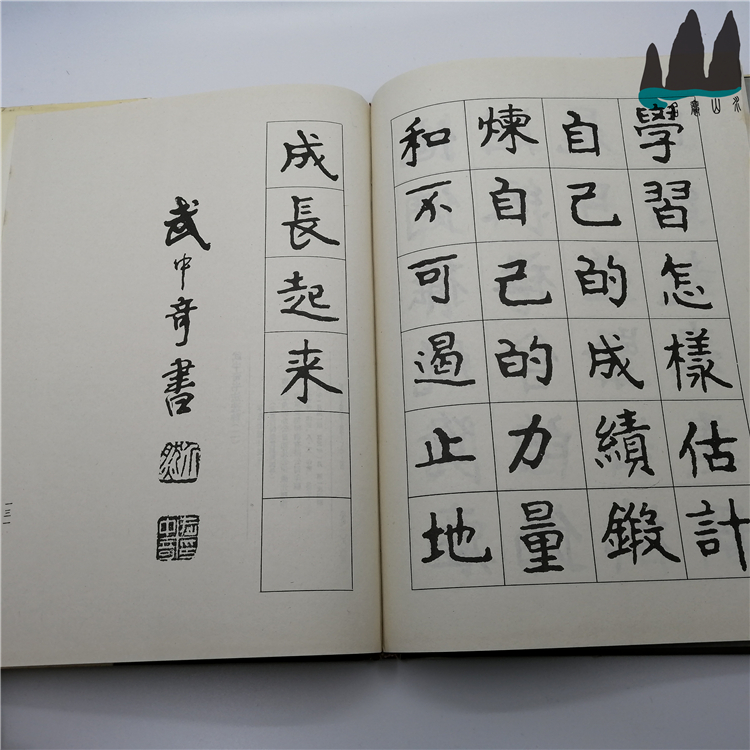 學習怎樣估計
自己的成績鍛
煉自己的力量
和不可遏止地
成長起来
武中奇書
一三一